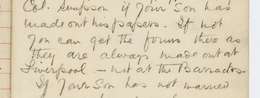 Col. Simpson if Your Son has
made out his papers. If not
You can get the forms thro as
they are always made out at
Liverpool – not at the Barracks.
If Your Son has not married